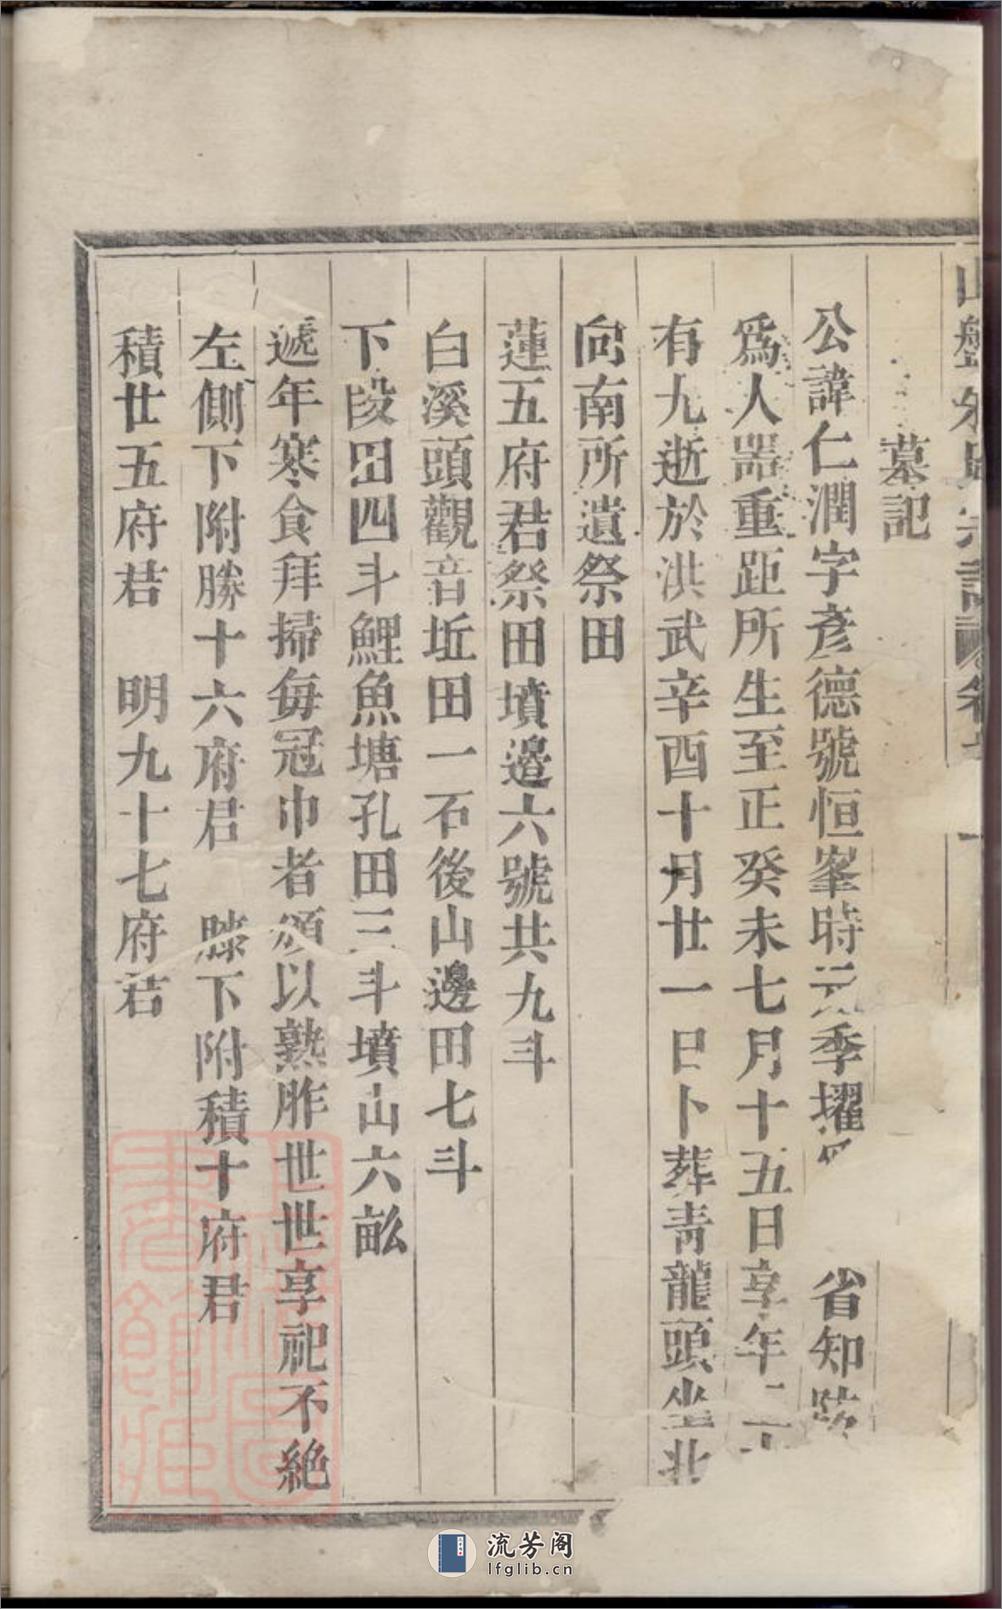 墓記
公諱仁潤字彥德號恒峯時元季擢 省知
爲人器重距所生至正癸未七月十五日享年
有九逝於洪武辛酉十月廿一日卜葬靑龍頭坐北
向南所遺祭田
蓮五府君祭田墳邉六號共九斗
白溪頭觀音坵田一石後山邊田七斗
下段田四斗鯉魚塘孔田三斗墳山六畝
遞年寒食拜掃每冠巾者頒以熟胙世世享祀不絕
左側下附勝十六府君 下附積十府君
積廿五府君 明九十七府君
流芳阁
lfglib.cn